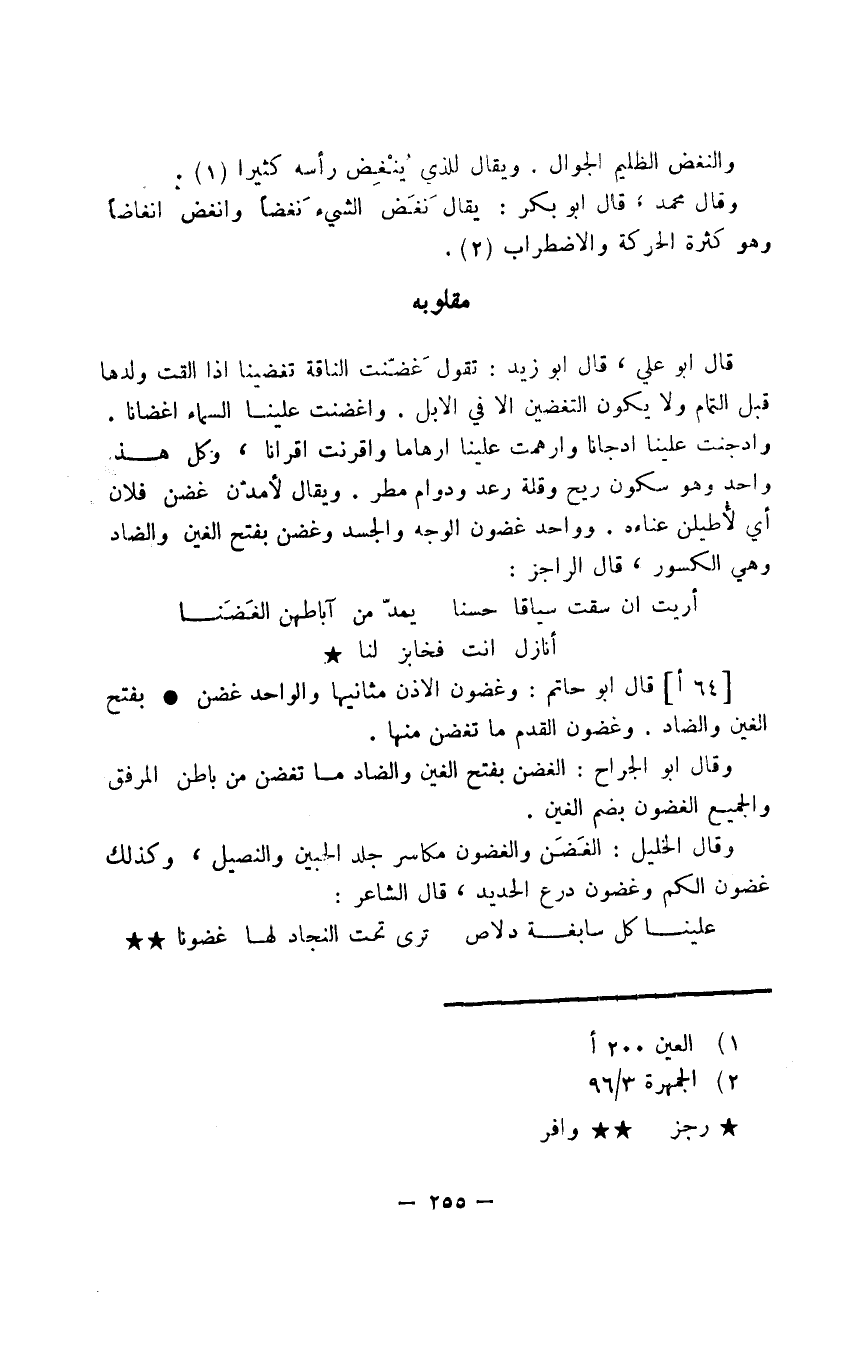 والنغض الظليم الجوال . ويقال للذي يُنْغِض رأسه كثيرا (١) .
وقال محمد ، قال ابو بكر : يقال نَغَض الشيء نَغضاً وانغض انغاضاً
وهو كثرة الحركة والاضطراب (٢) .
مقلوبه
قال ابو علي ، قال ابو زيد : تقول غَضّنت الناقة تغضينا اذا القت ولدها
قبل التمام ولا يكون التغضين الا في الابل . واغضنت علينا السماء اغضانا .
وادجنت علينا ادجانا وارهمت علينا ارهاما واقرنت اقرانا ، وكل هذ
واحد وهو سكون ريح وقلة رعد ودوام مطر . ويقال لأمدّن غضن فلان
أي لأطيلن عناءه . وواحد غضون الوجه والجسد وغضن بفتح الغين والضاد
وهي الكسور ، قال الراجز :
أريت ان سقت سياقا حسنا يمدّ من آباطهن الغَضَنا
أنازل انت فخابز لنا ★
[٦٤ أ] قال ابو حاتم : وغضون الاذن مثانيها والواحد غضن ● بفتح
الغين والضاد . وغضون القدم ما تغضن منها .
وقال ابو الجراح : الغضن بفتح الغين والضاد ما تغضن من باطن المرفق
والجميع الغضون بضم الغين .
وقال الخليل : الغَضَن والغضون مكاسر جلد الجبين والنصيل ، وكذلك
غضون الكم وغضون درع الحديد ، قال الشاعر :
علينا كل سابغة دلاص ترى تحت النجاد لها غضونا ★★
١) العين ٢٠٠ أ
٢) الجمهرة ٩٦/٣
★ رجز ★★ وافر
— ٢٥٥ —